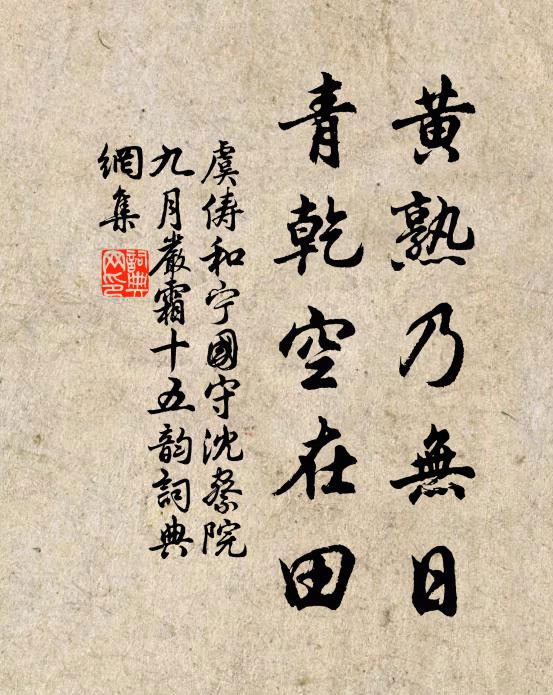 黃熟乃無日
青乾空在田
虞儔和宁國守沈察院
九月嚴霜十五韵詞典
網集
詞典网印